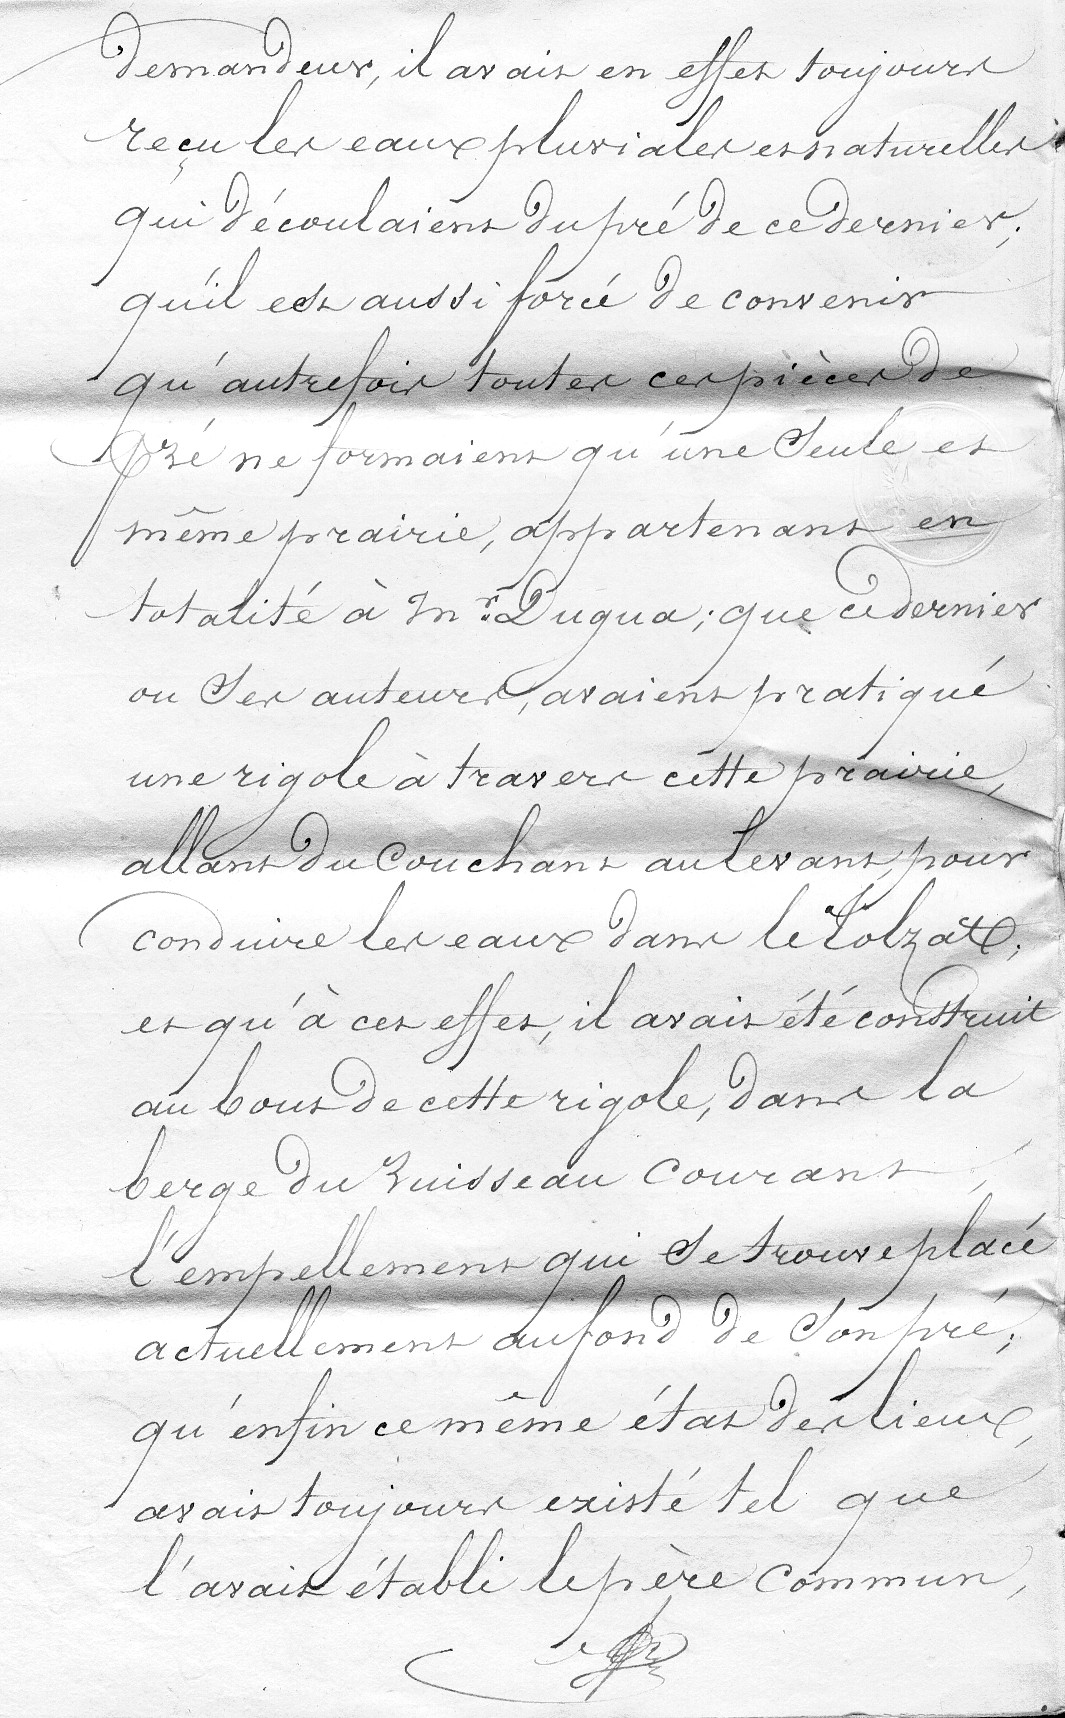 demandeur, il avait en effet toujours
reçu les eaux pluviales et naturelles
qui découlaient du pré de ce dernier;
qu'il est aussi forcé de convenir
qu'autrefois toutes ces pièces de
pré ne formaient qu'une seule et
même prairie, appartenant en
totalité à Mr. Dugua; que ce dernier
ou ses auteurs, avaient pratiqué
une rigole à travers cette prairie,
allant du Couchant au levant, pour
conduire les eaux dans le Colzat;
et qu'à cet effet, il avait été construit
au bout de cette rigole, dans la
berge du ruisseau courant,
l'empellement qui se trouve placé
actuellement au fond de son pré;
qu'enfin ce même état des lieux,
avait toujours existé tel que
l'avait établi le père commun,